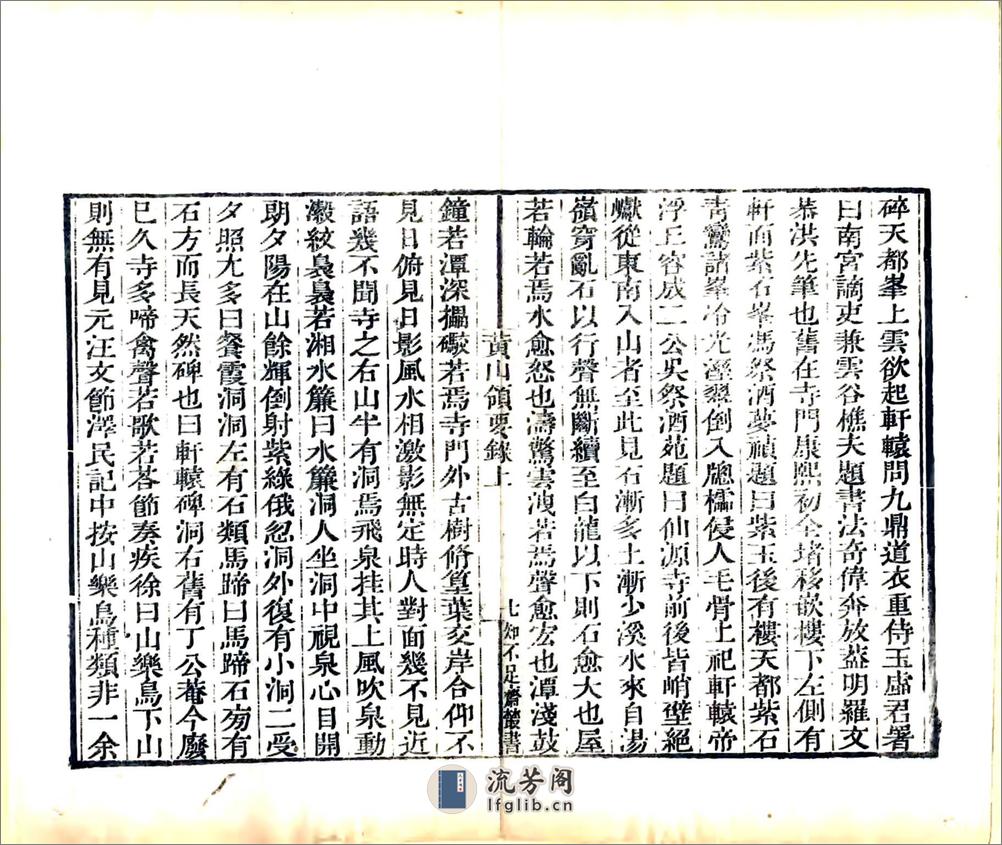 碎天都峯上雲欲起軒轅問九鼎道衣重侍玉虛君署
曰南宮謫吏兼雲谷樵夫題書法奇偉奔放葢明羅文
恭洪先筆也舊在寺門康熙初全堵移嵌樓下左側有
軒面紫石峯馮祭酒夢禎題曰紫玉後有樓天都紫石
青鸞諸峯冷光溼翠倒入牕櫺侵人毛骨上祀軒轅帝
浮丘容成二公吳祭酒苑題曰仙源寺前後皆峭壁絕
巘從東南入山者至此見石漸多土漸少溪水來自湯
嶺穿亂石以行聲無斷續至白龍以下則石愈大也屋
若輪若焉水愈怒也濤驚雲洩若焉聲愈宏也潭淺鼓
黃山領要錄上
七
知不足齋叢書
鐘若潭深擂礮若焉寺門外古樹脩篁葉交岸合仰不
見日俯見日影風水相激影無定時人對面幾不見近
語幾不聞寺之右山半有洞焉飛泉挂其上風吹泉動
縠紋裊裊若湘水簾曰水簾洞人坐洞中視泉心目開
朗夕陽在山餘輝倒射紫綠俄忽洞外復有小洞二受
夕照尤多曰餐霞洞洞左有石類馬蹄曰馬蹄石旁有
石方而長天然碑也曰軒轅碑洞右舊有丁公菴今廢
已久寺多啼禽聲若歌若荅節奏疾徐曰山樂鳥下山
則無有見元汪文節澤民記中按山樂鳥種類非一余
流芳阁
lfglib.cn